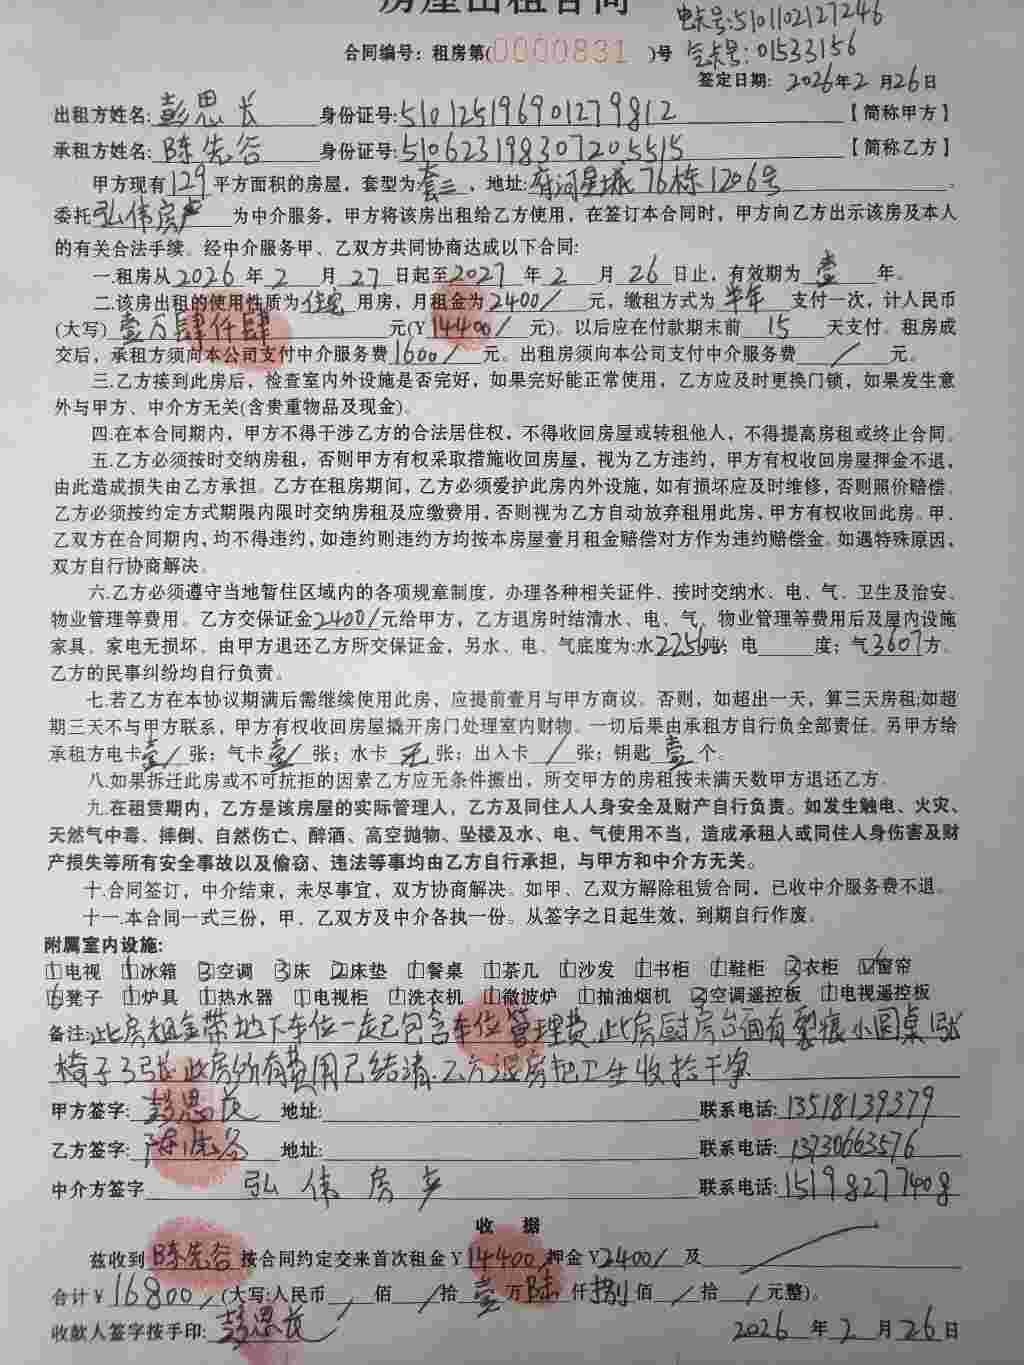 房屋出租合同
电卡号:5101102127246
合同编号：租房第(0000831)号 气卡号:01533156
签定日期：2026年2月26日
出租方姓名:彭思长 身份证号:510125196901279812【简称甲方】
承租方姓名:陈先谷 身份证号:510623198307205515【简称乙方】
甲方现有129平方面积的房屋，套型为套三，地址:府河星城76栋1206号。
委托弘伟房产为中介服务，甲方将该房出租给乙方使用，在签订本合同时，甲方向乙方出示该房及本人
的有关合法手续。经中介服务甲、乙双方共同协商达成以下合同:
一.租房从2026年2月27日起至2027年2月26日止，有效期为壹年。
二.该房出租的使用性质为住宅用房，月租金为2400/元，缴租方式为半年支付一次，计人民币
(大写)壹万肆仟肆元(Y14400/元)。以后应在付款期末前15天支付。租房成
交后，承租方须向本公司支付中介服务费1600/元。出租房须向本公司支付中介服务费/元。
三.乙方接到此房后，检查室内外设施是否完好，如果完好能正常使用，乙方应及时更换门锁，如果发生意
外与甲方、中介方无关(含贵重物品及现金)。
四.在本合同期内，甲方不得干涉乙方的合法居住权，不得收回房屋或转租他人，不得提高房租或终止合同。
五.乙方必须按时交纳房租，否则甲方有权采取措施收回房屋，视为乙方违约，甲方有权收回房屋押金不退，
由此造成损失由乙方承担。乙方在租房期间，乙方必须爱护此房内外设施，如有损坏应及时维修，否则照价赔偿。
乙方必须按约定方式期限内限时交纳房租及应缴费用，否则视为乙方自动放弃租用此房，甲方有权收回此房。甲、
乙双方在合同期内，均不得违约，如违约则违约方均按本房屋壹月租金赔偿对方作为违约赔偿金。如遇特殊原因，
双方自行协商解决。
六.乙方必须遵守当地暂住区域内的各项规章制度，办理各种相关证件、按时交纳水、电、气、卫生及治安、
物业管理等费用。乙方交保证金2400/元给甲方，乙方退房时结清水、电、气、物业管理等费用后及屋内设施
家具、家电无损坏、由甲方退还乙方所交保证金，另水、电、气底度为:水2256吨；电 度；气3607方。
乙方的民事纠纷均自行负责。
七.若乙方在本协议期满后需继续使用此房，应提前壹月与甲方商议。否则，如超出一天，算三天房租;如超
期三天不与甲方联系，甲方有权收回房屋撬开房门处理室内财物。一切后果由承租方自行负全部责任。另甲方给
承租方电卡壹/张；气卡壹/张；水卡无张；出入卡/张；钥匙壹个。
八.如果拆迁此房或不可抗拒的因素乙方应无条件搬出，所交甲方的房租按未满天数甲方退还乙方。
九.在租赁期内，乙方是该房屋的实际管理人，乙方及同住人人身安全及财产自行负责。如发生触电、火灾、
天然气中毒、摔倒、自然伤亡、醉酒、高空抛物、坠楼及水、电、气使用不当，造成承租人或同住人身伤害及财
产损失等所有安全事故以及偷窃、违法等事均由乙方自行承担，与甲方和中介方无关。
十.合同签订，中介结束，未尽事宜，双方协商解决。如甲、乙双方解除租赁合同，已收中介服务费不退。
十一.本合同一式三份，甲、乙双方及中介各执一份。从签字之日起生效，到期自行作废。
附属室内设施:
1电视 1冰箱 3空调 3床 2床垫 1餐桌 1茶几 1沙发 1书柜 1鞋柜 3衣柜 窗帘
6凳子 1炉具 1热水器 1电视柜 1洗衣机 1微波炉 1抽油烟机 3空调遥控板 1电视遥控板
备注:此房租金带地下车位一起已包含车位管理费.此房厨房台面有裂痕小圆桌1张
椅子3张.此房所有费用已结清.乙方退房把卫生收拾干净
甲方签字:彭思长 地址: 联系电话:13518139379
乙方签字:陈先谷 地址: 联系电话:13730663576
中介方签字 弘伟房产 联系电话:15198277408
收 据
兹收到陈先谷按合同约定交来首次租金Y14400/押金Y2400/及
合计Y16800/(大写:人民币/佰/拾壹万陆仟捌佰/拾/元整)。
收款人签字按手印:彭思长 2026年2月26日